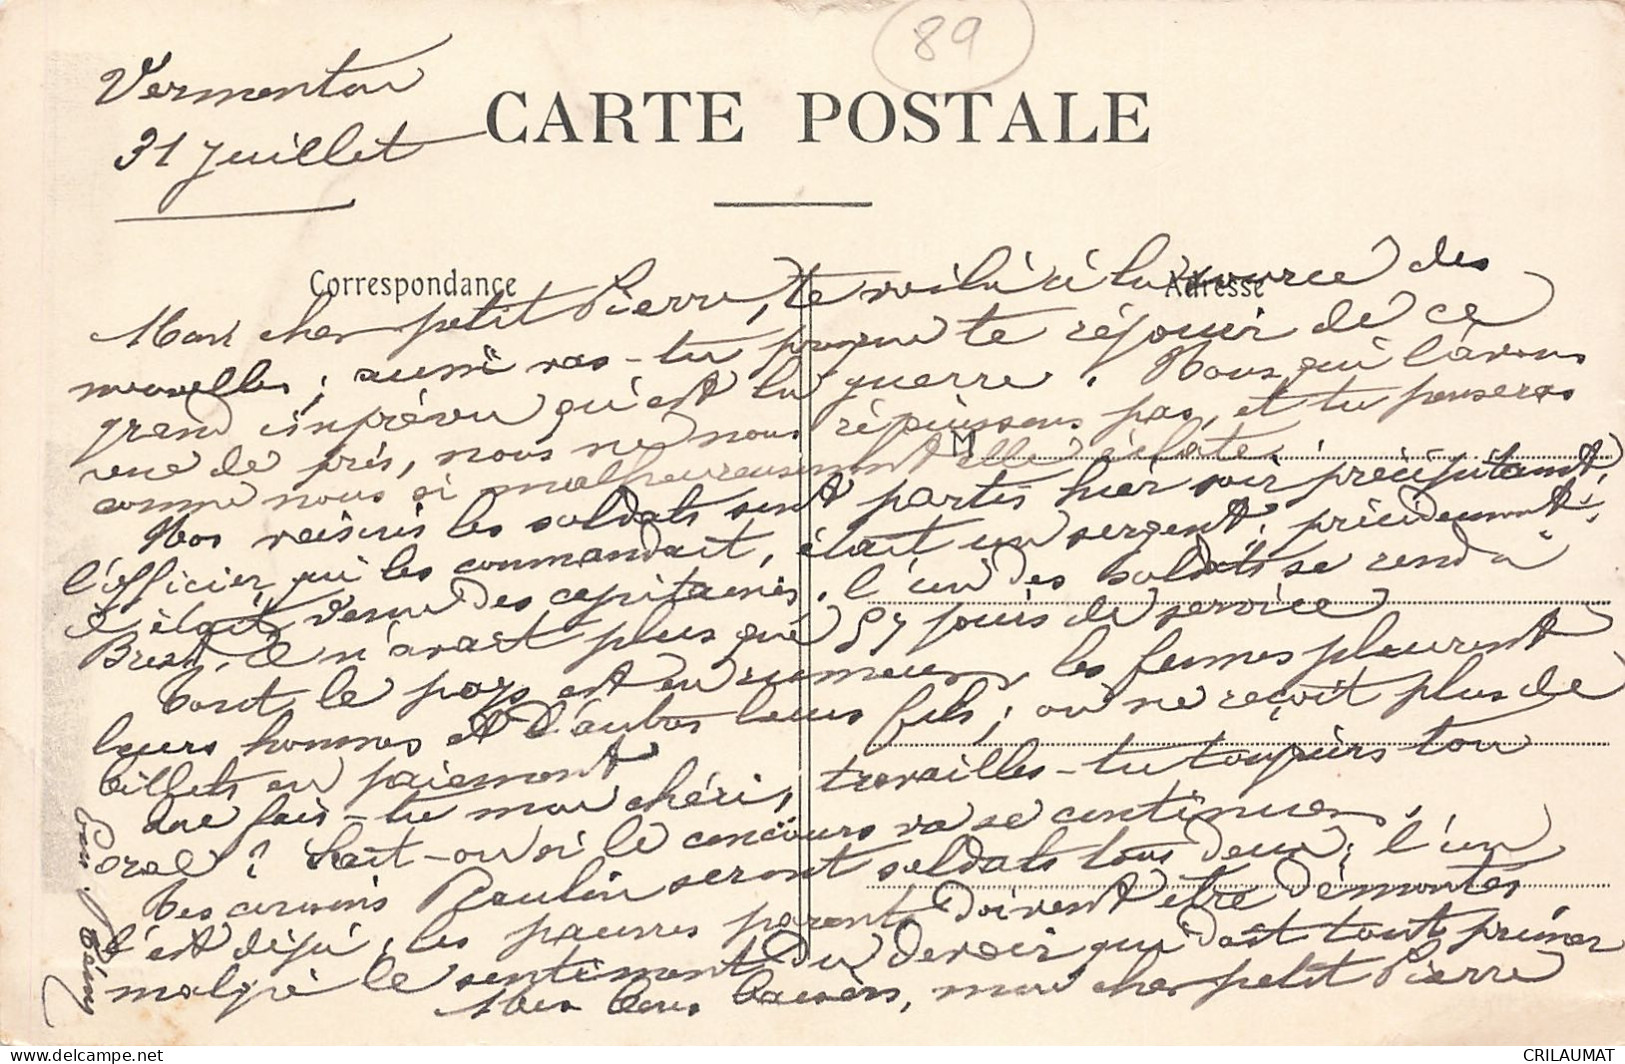 89
Vermenton
31 Juillet
CARTE POSTALE
Correspondance
Adresse
Mon cher petit Pierre, te voilà à la source des
nouvelles ; aussi vas-tu pouvoir te réjouir de ce
grand imprévu qu'est la guerre. Nous qui l'avons
vue de près, nous ne nous réjouissons pas, et tu penseras
comme nous si malheureusement elle éclate.
M
Nos voisins les soldats sont partis hier soir précipitamt,
l'officier qui les commandait, était un sergent ; précédemment
il était venu des capitaines. l'un des soldats se rend à
Brest, il n'avait plus que 57 jours de service
Tout le pays est en rumeur, les femmes pleurent
leurs hommes et d'autres leurs fils ; on ne reçoit plus de
billets en paiement
Que fais-tu mon chéri, travailles-tu toujours ton
oral ? Sait-on si le concours va se continuer,
Tes cousins Paulin seront soldats tous deux ; l'un
l'est déjà ; les pauvres parents doivent être démontés
malgré le sentiment du devoir qui doit tout primer
Mes bons baisers, mon cher petit Pierre
CRILAUMAT